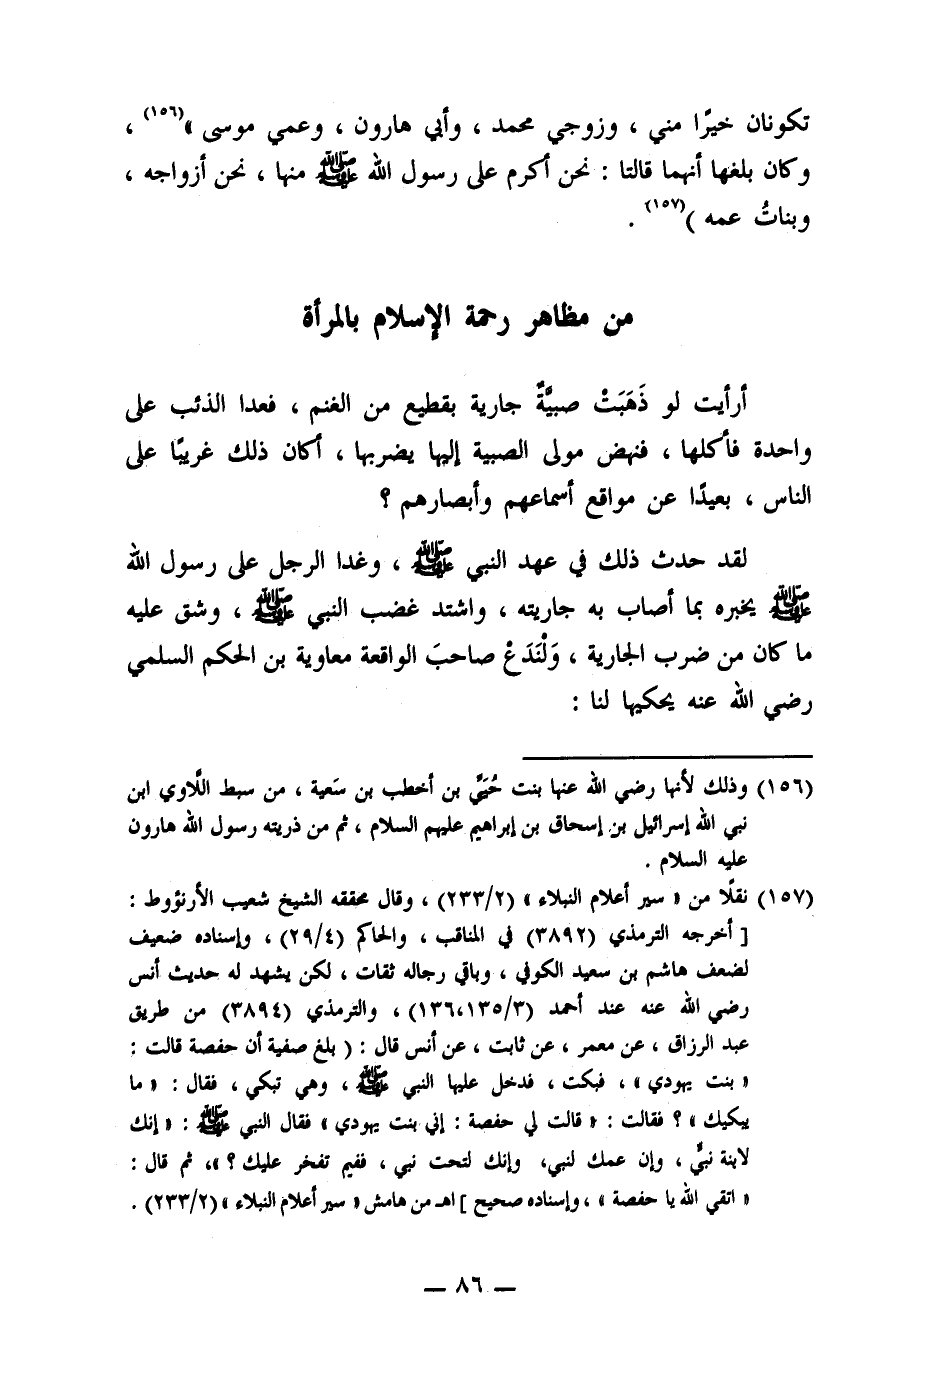 تكونان خيرًا مني ، وزوجي محمد ، وأبي هارون ، وعمي موسى »(١٥٦) ،
وكان بلغها أنهما قالتا : نحن أكرم على رسول الله ﷺ منها ، نحن أزواجه ،
وبناتُ عمه )(١٥٧) .
من مظاهر رحمة الإسلام بالمرأة
أرأيت لو ذَهَبَتْ صبيَّةٌ جارية بقطيع من الغنم ، فعدا الذئب على
واحدة فأكلها ، فنهض مولى الصبية إليها يضربها ، أكان ذلك غريبًا على
الناس ، بعيدًا عن مواقع أسماعهم وأبصارهم ؟
لقد حدث ذلك في عهد النبي ﷺ ، وغدا الرجل على رسول الله
ﷺ يخبره بما أصاب به جاريته ، واشتد غضب النبي ﷺ ، وشق عليه
ما كان من ضرب الجارية ، وَلْنَدَعْ صاحبَ الواقعة معاوية بن الحكم السلمي
رضي الله عنه يحكيها لنا :
(١٥٦) وذلك لأنها رضي الله عنها بنت حُيَيِّ بن أخطب بن سَعية ، من سبط اللَّاوي ابن
نبي الله إسرائيل بن إسحاق بن إبراهيم عليهم السلام ، ثم من ذريته رسول الله هارون
عليه السلام .
(١٥٧) نقلًا من « سير أعلام النبلاء » (٢٣٣/٢) ، وقال محققه الشيخ شعيب الأرنؤوط :
[ أخرجه الترمذي (٣٨٩٢) في المناقب ، والحاكم (٢٩/٤) ، وإسناده ضعيف
لضعف هاشم بن سعيد الكوفي ، وباقي رجاله ثقات ، لكن يشهد له حديث أنس
رضي الله عنه عند أحمد (١٣٦،١٣٥/٣) ، والترمذي (٣٨٩٤) من طريق
عبد الرزاق ، عن معمر ، عن ثابت ، عن أنس قال : ( بلغ صفية أن حفصة قالت :
« بنت يهودي » ، فبكت ، فدخل عليها النبي ﷺ ، وهي تبكي ، فقال : « ما
يبكيك » ؟ فقالت : « قالت لي حفصة : إني بنت يهودي » فقال النبي ﷺ : « إنك
لابنة نبيٍّ ، وإن عمك لنبي، وإنك لتحت نبي ، ففيم تفخر عليك ؟ »، ثم قال :
« اتقي الله يا حفصة » ، وإسناده صحيح ] اهـ من هامش « سير أعلام النبلاء » (٢٣٣/٢) .
— ٨٦ —